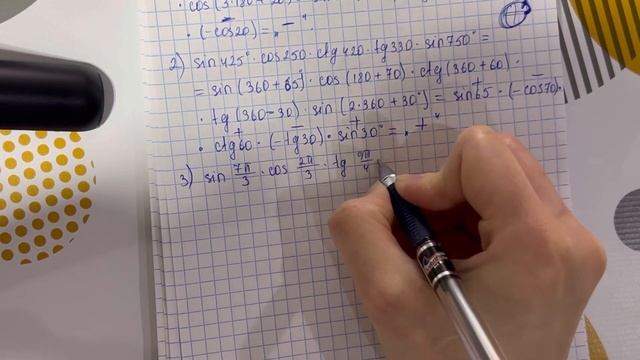 · cos (3·180+20)
· (-cos20) = „ — "
2) sin 425° · cos250 · ctg 420 · tg330 · sin 750° =
= sin (360+65) · cos (180+70) · ctg (360+60) ·
· tg (360-30) · sin (2·360+30°) = sin65 · (-cos70) ·
· ctg60 · (-tg30) · sin 30° = „ + "
3) sin 7π/3 · cos 2π/3 · tg π/4